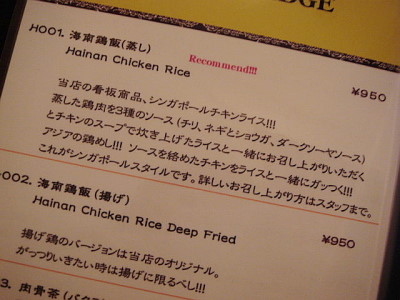 DGE
H001. 海南鶏飯(蒸し)
Hainan Chicken Rice
Recommend!!!
¥950
当店の看板商品、シンガポールチキンライス!!!
蒸した鶏肉を3種のソース(チリ、ネギとショウガ、ダークソーヤソース)
とチキンのスープで炊き上げたライスと一緒にお召し上がりいただく
アジアの鶏めし!!! ソースを絡めたチキンをライスと一緒にガッつく!!!
これがシンガポールスタイルです。詳しいお召し上がり方はスタッフまで。
H002. 海南鶏飯(揚げ)
Hainan Chicken Rice Deep Fried
¥950
揚げ鶏のバージョンは当店のオリジナル。
がっつりいきたい時は揚げに限るべし!!!
3. 肉骨茶(バク